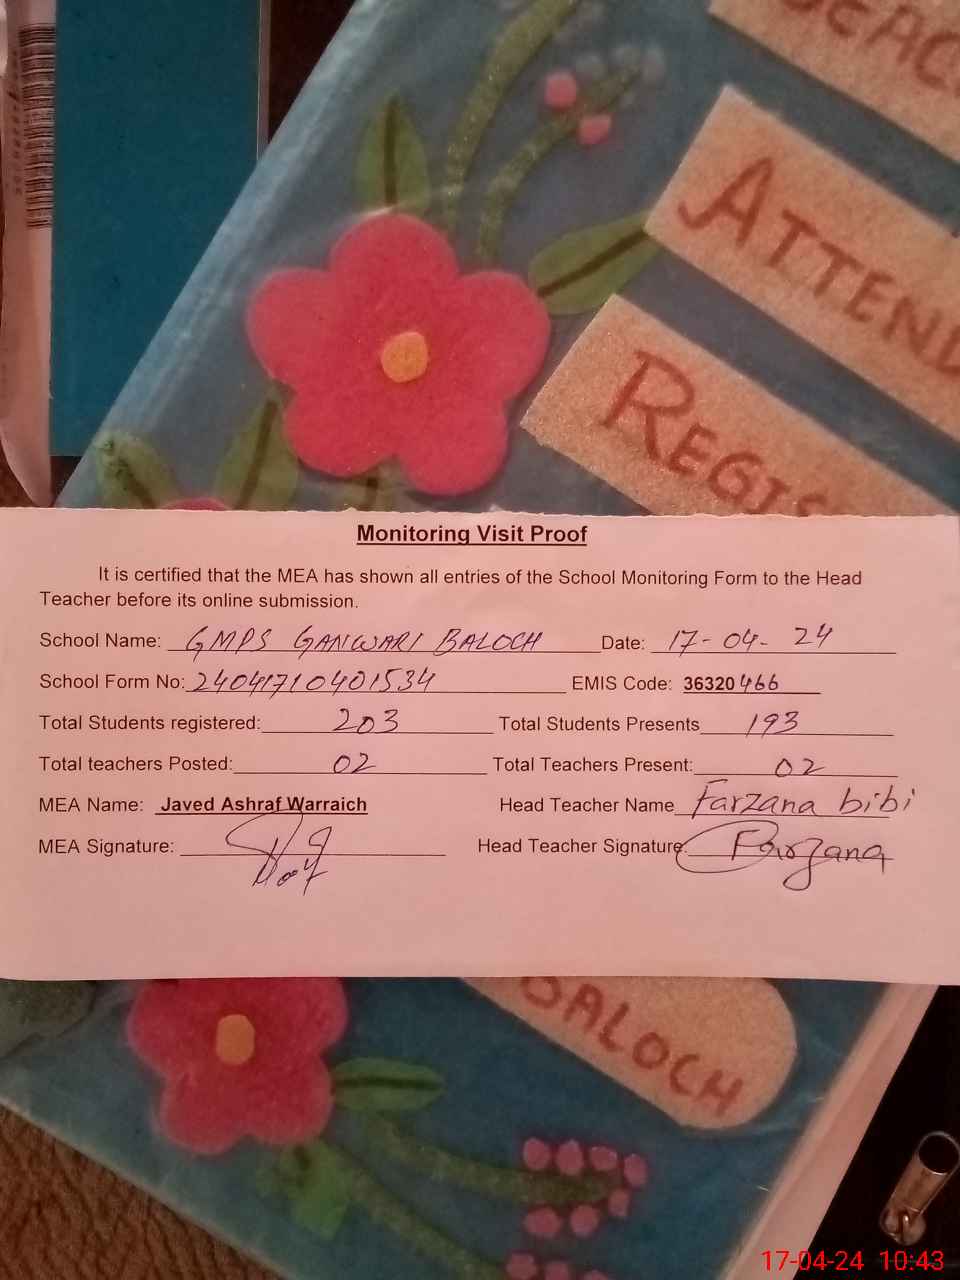 ATTEND
REGIS
Monitoring Visit Proof
It is certified that the MEA has shown all entries of the School Monitoring Form to the Head
Teacher before its online submission.
School Name: GMPS GANWARI BALOCH Date: 17-04-24
School Form No: 24041710401534 EMIS Code: 36320466
Total Students registered: 203 Total Students Presents 193
Total teachers Posted: 02 Total Teachers Present: 02
MEA Name: Javed Ashraf Warraich Head Teacher Name Farzana bibi
MEA Signature: Head Teacher Signature Farzana
BALOCH
17-04-24 10:43